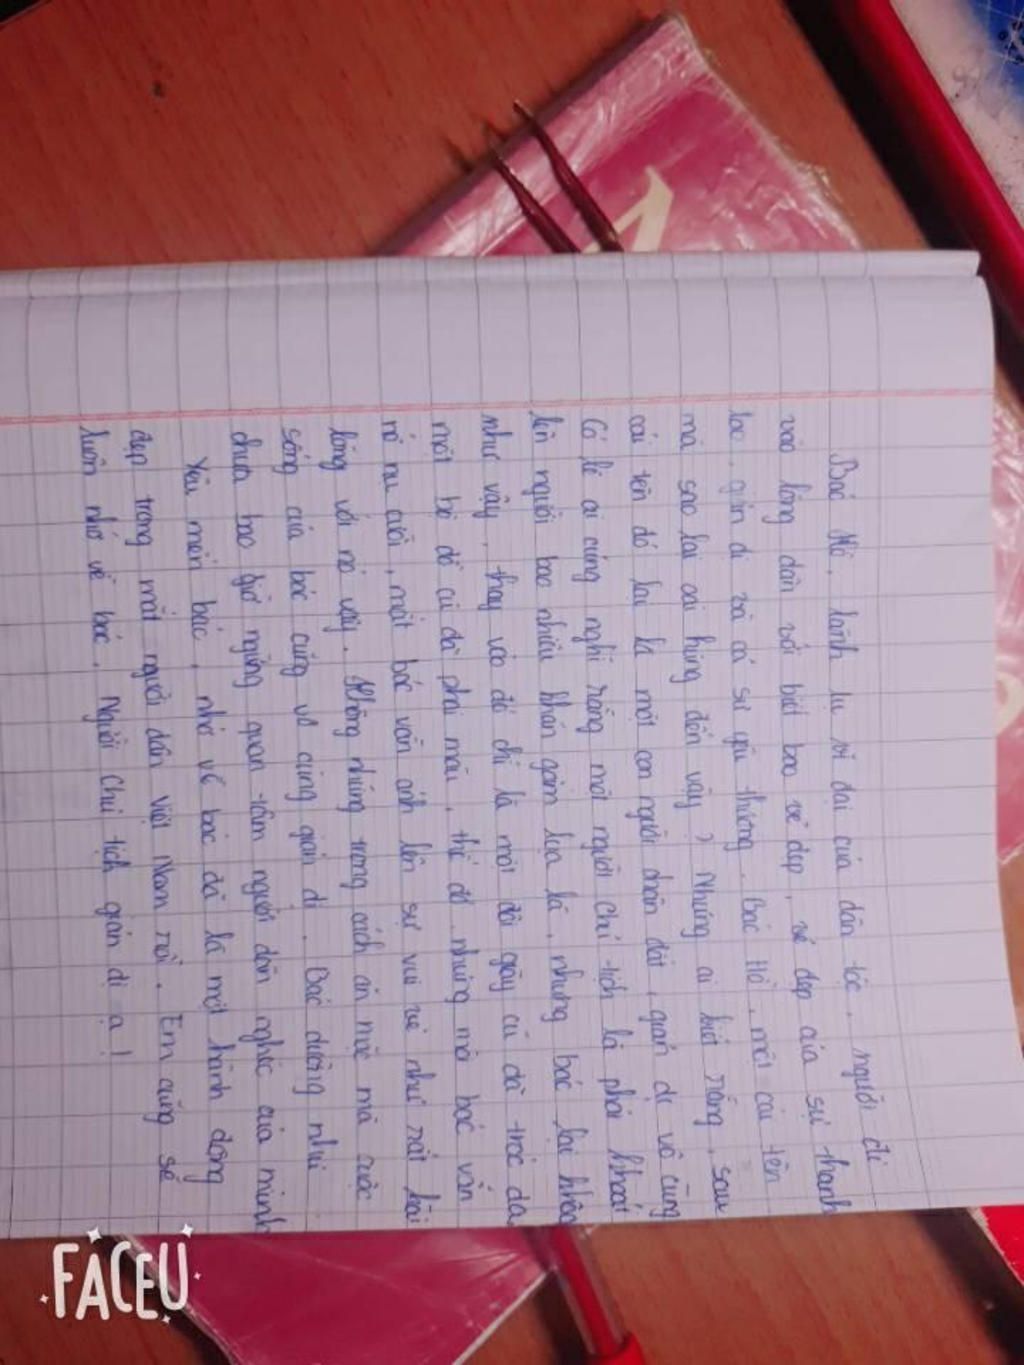 Bác Hồ, lãnh tụ vĩ đại của dân tộc, người đi
vào lòng dân với biết bao vẻ đẹp, vẻ đẹp của sự thanh
cao, giản dị và cả sự yêu thương. Bác Hồ, một cái tên
mà sao lại oai hùng đến vậy? Nhưng ai biết rằng, sau
cái tên đó lại là một con người chân đất, giản dị vô cùng
Có lẽ ai cũng nghĩ rằng một người Chủ tịch là phải khoát
lên người bao nhiêu khăn gấm lụa là, nhưng bác lại không
như vậy, thay vào đó chỉ là một đôi giày cũ đã tróc da,
một bộ đồ cũ đã phai màu, thế đó nhưng mà bác vẫn
nở nụ cười, mắt bác vẫn ánh lên sự vui vẻ như rất hài
lòng với nó vậy. Không những trong cách ăn mặc mà cuộc
sống của bác cũng vô cùng giản dị. Bác dường như
chưa bao giờ ngừng quan tâm người dân nghèo của mình
Yêu mến bác, nhớ về bác đã là một hành động
đẹp trong mắt người dân Việt Nam rồi. Em cũng sẽ
luôn nhớ về bác, Người Chủ tịch giản dị ạ!
FACEU